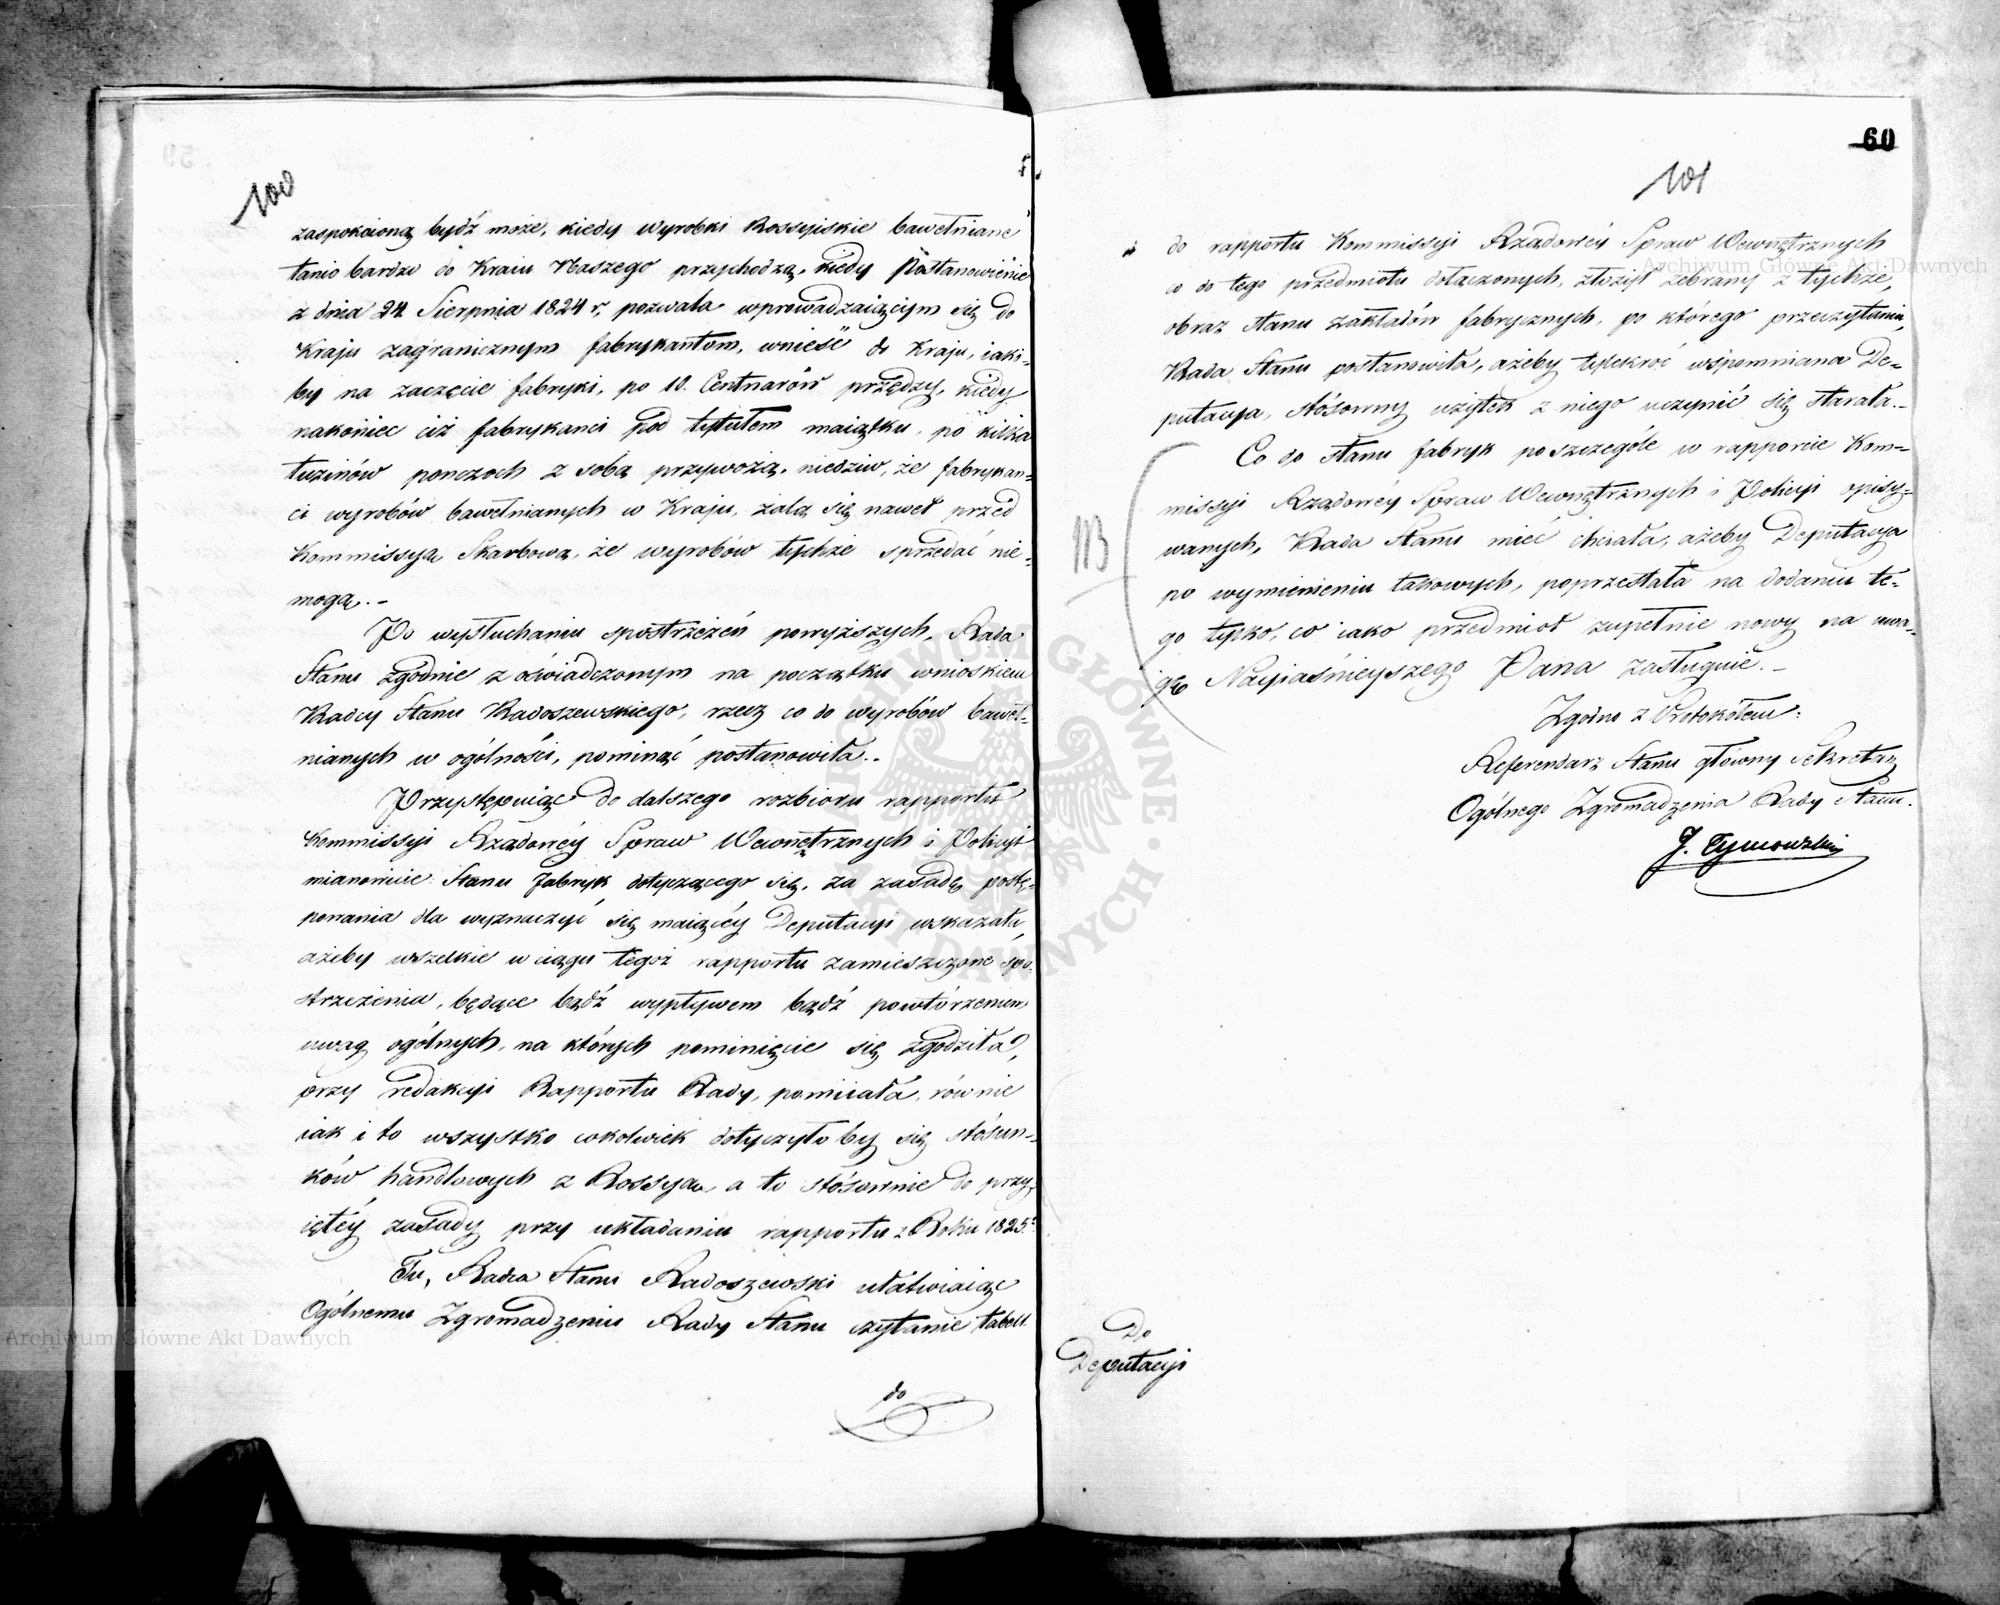 100
zaspokoioną bydź może, kiedy wyrobki Rossyiskie bawełniane
tanio bardzo do Kraiu Naszego przychodzą, kiedy Postanowienie
z dnia 24 Sierpnia 1824 r, pozwala wprowadzaiącym się do
Kraju zagranicznym fabrykantom, wnieść do Kraju, iaki-
by na zaczęcie fabryki, po 10. Centnarów przędzy, kiedy
nakoniec ciż fabrykanci pod tytułem maiątku, po kilka
tuzinów ponczoch z sobą przywożą, niedziw, że fabrykan-
ci wyrobów bawełnianych w Kraju, żalą się nawet przed
Kommissyą Skarbową, że wyrobów tychże sprzedać nie-
mogą.-
Po wysłuchaniu spostrzeżeń powyższych, Rada
Stanu zgodnie z oświadczonym na początku wnioskiem
Radcy Stanu Radoszewskiego, rzecz co do wyrobów baweł-
nianych w ogólności, pominąć postanowiła.-
Przystępuiąc do dalszego rozbioru rapportu
Kommissyi Rządowéy Spraw Wewnętrznych i Policyi
mianowicie Stanu fabryk dotyczącego się, za zasadę postę-
powania dla wyznaczyć się maiącéy Deputacyi wskazała,
ażeby wszelkie w ciągu tegoż rapportu zamieszczone spo-
strzeżenia, będące bądź wypływem bądź powtórzeniem
uwag ogólnych, na których pominięcie się zgodziła,
przy redakcyi Rapportu Rady, pomiiała, równie
iak i to wszystko cokolwiek dotyczyło by się stósun-
ków handlowych z Rossyą, a to stósownie do przy-
iętéy zasady przy układaniu rapportu z Roku 1825.
Tu, Radca Stanu Radoszewski ułatwiaiąc
Ogólnemu Zgromadzeniu Rady Stanu czytanie tabell
do
60
101
do rapportu Kommissyi Rządowéy Spraw Wewnętrznych
co do tego przedmiotu dołączonych, złożył zebrany z tychże,
obraz stanu zakładów fabrycznych, po którego przeczytaniu,
Rada Stanu postanowiła, ażeby tylekroć wspomniana De-
putacya, stósowny użytek z niego uczynić się starała.-
Co do stanu fabryk po szczególe w rapporcie Kom-
missyi Rządowéy Spraw Wewnętrznych i Policyi opisy-
wanych, Rada Stanu mieć chciała, ażeby Deputacya
po wymienieniu takowych, poprzestała na dodaniu te-
go tylko, co iako przedmiot zupełnie nowy na uwa-
gę Nayiaśnieyszego Pana zasługuie.-
Zgodno z Protokołem:
Referendarz Stanu główny Sekretarz
Ogólnego Zgromadzenia Rady Stanu.
J. Tymowski
Do
Deputacyi
Archiwum Główne Akt Dawnych
Archiwum Główne Akt Dawnych
ARCHIWUM GŁÓWNE AKT DAWNYCH